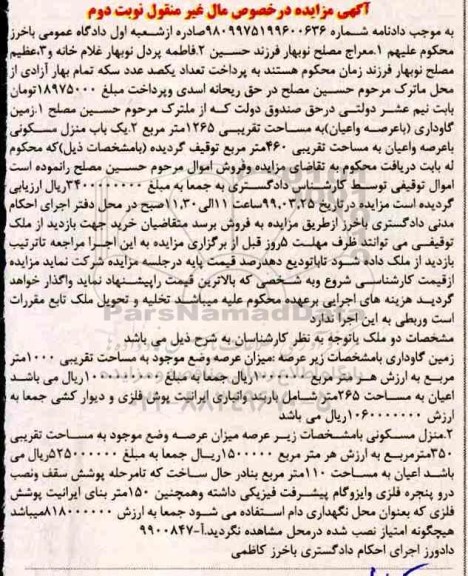 آگهی مزایده درخصوص مال غیر منقول نوبت دوم
به موجب دادنامه شماره ۹۸۰۹۹۷۵۱۹۹۶۰۰۶۳۶صادره ازشعبه اول دادگاه عمومی باخرز
محکوم علیهم ۱.معراج مصلح نوبهار فرزند حسین ۲.فاطمه پردل نوبهار غلام خانه و۳.عظیم
مصلح نوبهار فرزند زمان محکوم هستند به پرداخت تعداد یکصد عدد سکه تمام بهار آزادی از
محل ماترک مرحوم حسین مصلح در حق ریحانه اسدی وپرداخت مبلغ ۱۸۹۷۵۰۰۰تومان
بابت نیم عشر دولتی درحق صندوق دولت کـه از ملترک مرحوم حسین مصلح ۱.زمین
گاوداری (باعرصـه واعیان)به مساحت تقریبـی ۱۲۶۵متر مربع ۲.یک باب منزل مسـکونی
باعرصه واعیان به مساحت تقریبی ۴۶۰متر مربع توقیف گردیده (بامشخصات ذیل)که محکوم
له بابت دریافت محکوم به تقاضای مزایده وفروش اموال مرحوم حسین مصلح رانموده است
اموال توقیفی توسط کارشناس دادگستری به جمعا به مبلغ ۳۴۰۰۰۰۰۰۰۰ریال ارزیابی
گردیده است مزایده درتاریخ ۹۹.۰۳.۲۵ساعت ۱۱الی۱۱.۳۰صبح در محل دفتر اجرای احکام
مدنی دادگستری باخرز ازطریق مزایده به فروش برسد متقاضیان خرید جهت بازدید از ملک
توقیفـی می توانند ظرف مهلـت ۵روز قبل از برگزاری مزایده به این اجـرا مراجعه تاترتیب
بازدید از ملک داده شـود تاباتودیع دهدرصد قیمت پایه درجلسه مزایده شرکت نماید مزایده
ازقیمت کارشناسـی شروع وبه شـخصی که بالاترین قیمت راپیشـنهاد نماید واگذار خواهد
گردیـد هزینه های اجرایی برعهده محکوم علیه میباشـد تخلیه و تحویل ملک تابع مقررات
است وربطی به این اجرا ندارد
مشخصات دو ملک باتوجه به نظر کارشناسان به شرح ذیل می باشد
زمین گاوداری بامشخصات زیر عرصه :میزان عرصه وضع موجود به مساحت تقریبی ۱۰۰۰متر
اعیان به مساحت ۲۶۵متر شـامل باربند وانباری ایرانیت پوش فلزی و دیوار کشی جمعا به
ارزش ۱۰۶۰۰۰۰۰۰۰ریال می باشد
۲.منزل مسـکونی بامشـخصات زیـر عرصه میزان عرصـه وضع موجود به مسـاحت تقریبی
۳۵۰مترمربـع به ارزش هر متر مربع ۱۵۰۰۰۰۰ریـال جمعا به مبلغ ۵۲۵۰۰۰۰۰۰ریال می
باشد اعیان به مساحت ۱۱۰متر مربع بنادر حال ساخت که تامرحله پوشش سقف ونصب
درو پنجره فلزی وایزوگام پیشـرفت فیزیکی داشته وهمچنین ۱۵۰متر بنای ایرانیت پوشش
فلزی که بعنوان محل نگهداری دام استفاده می شود جمعا به ارزش ۸۱۸۰۰۰۰۰۰میباشد
هیچگونه امتیاز نصب شده درمحل مشاهده نگردید.آ-۹۹۰۰۸۴۷
دادورز اجرای احکام دادگستری باخرز کاظمی
ParsNamadData